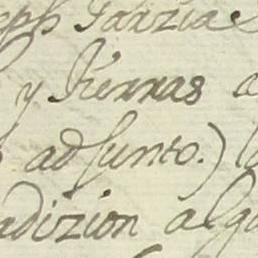 eph Garzia
y tierras a
adjunto.) l
adizion alg